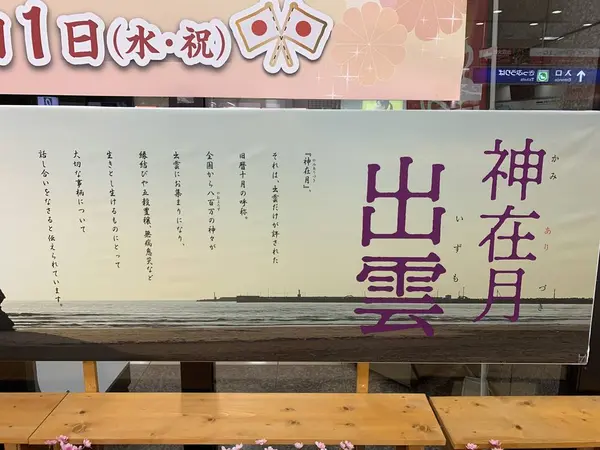 1日(水・祝)
入口
神在月
かみ ありづき
出雲
いずも
『神在月』。
それは、出雲だけが許された
旧暦十月の呼称。
全国から八百万の神々が
出雲にお集まりになり、
縁結びや五穀豊穣、無病息災など
生きとし生けるものにとって
大切な事柄について
話し合いをなさると伝えられています。